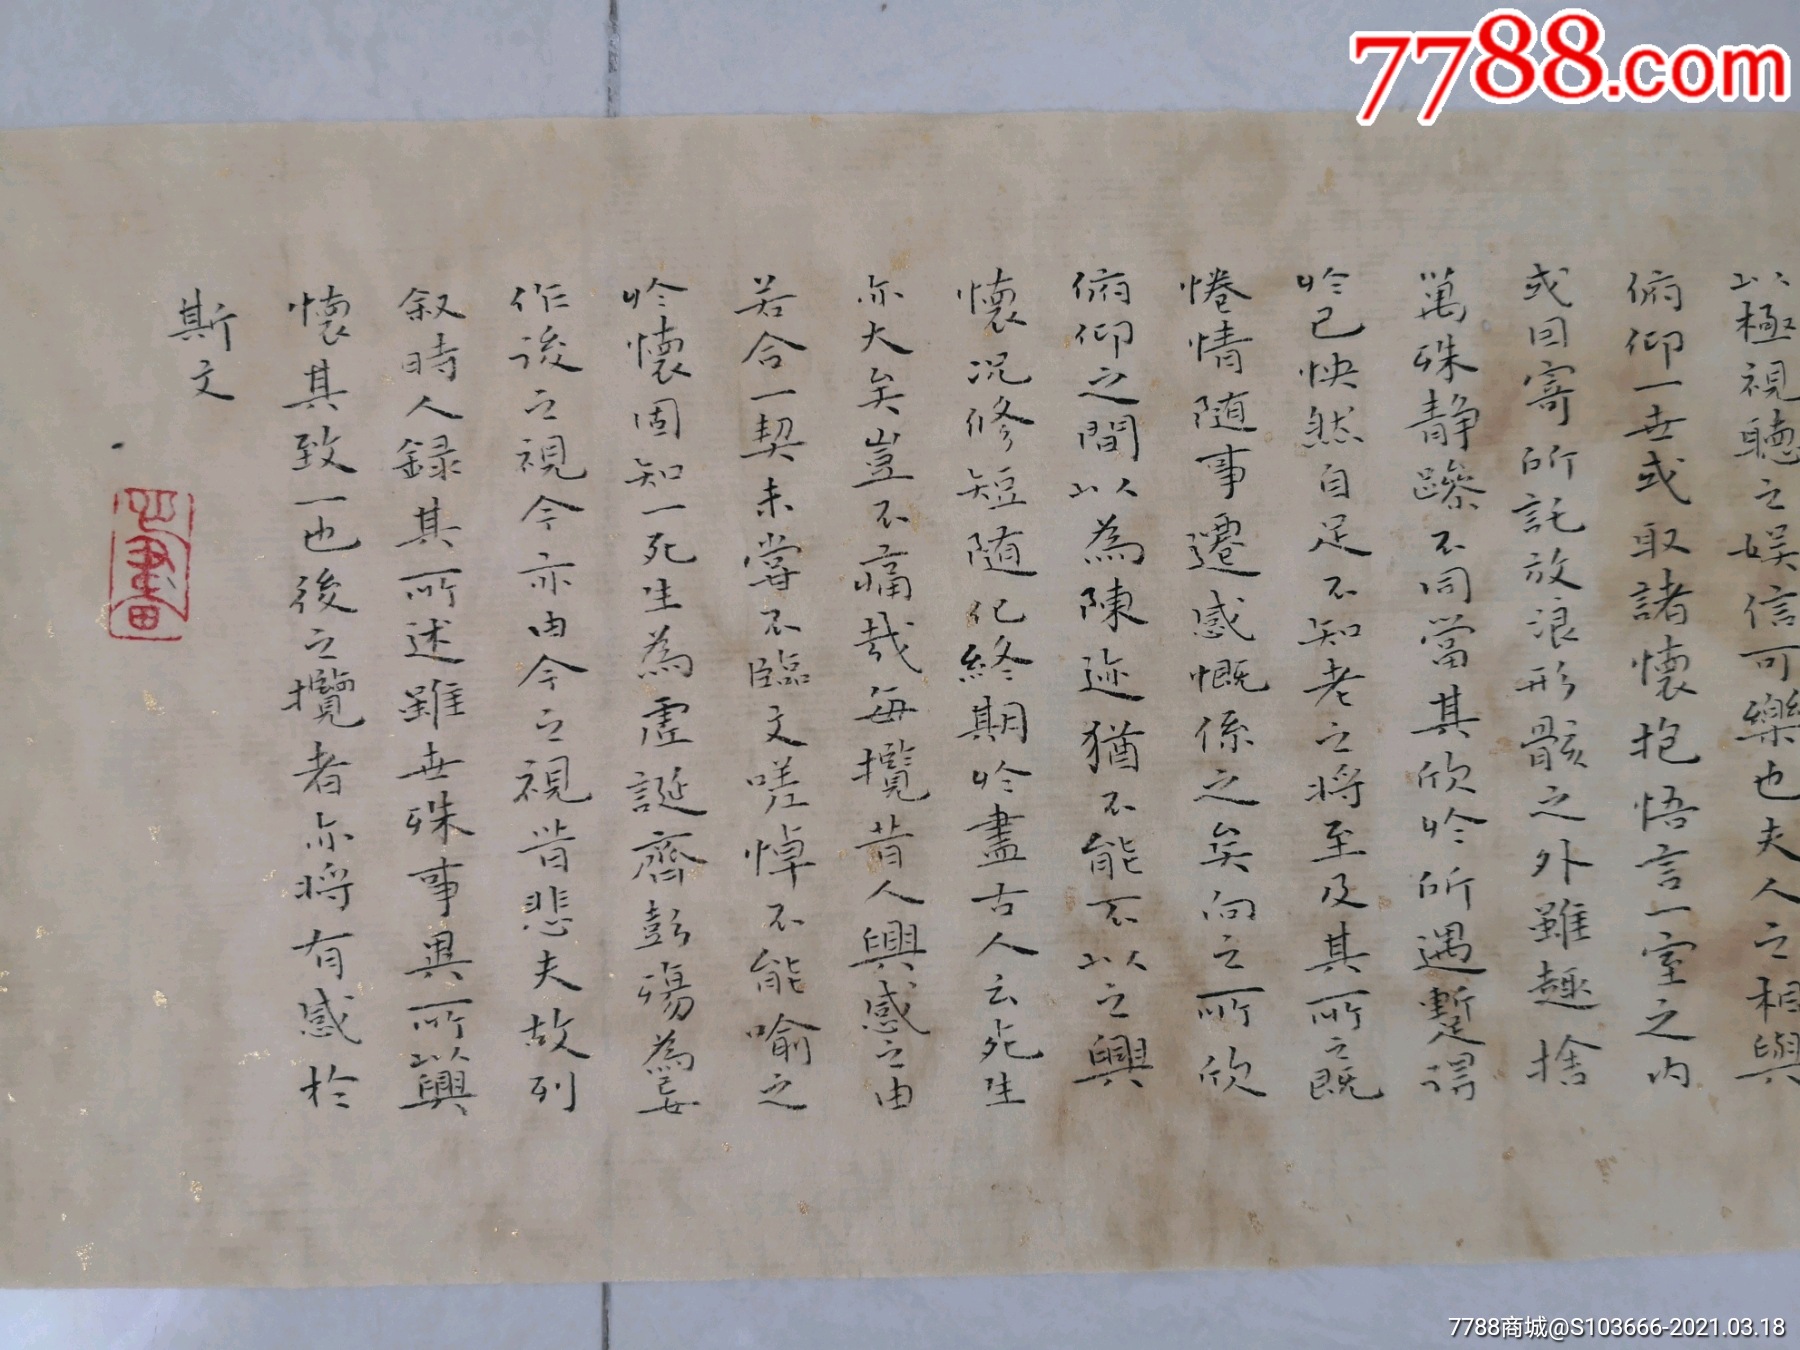 7788.com
以極視聽之娛信可樂也夫人之相與
俯仰一世或取諸懷抱悟言一室之內
或因寄所託放浪形骸之外雖趣捨
萬殊靜躁不同當其欣於所遇暫得
於己怏然自足不知老之將至及其所之既
惓情隨事遷感慨係之矣向之所欣
俯仰之間以為陳迹猶不能不以之興
懷況修短隨化終期於盡古人云死生
亦大矣豈不痛哉每攬昔人興感之由
若合一契未嘗不臨文嗟悼不能喻之
於懷固知一死生為虛誕齊彭殤為妄
作後之視今亦由今之視昔悲夫故列
叙時人錄其所述雖世殊事異所以興
懷其致一也後之攬者亦將有感於
斯文
7788商城@S103666-2021.03.18